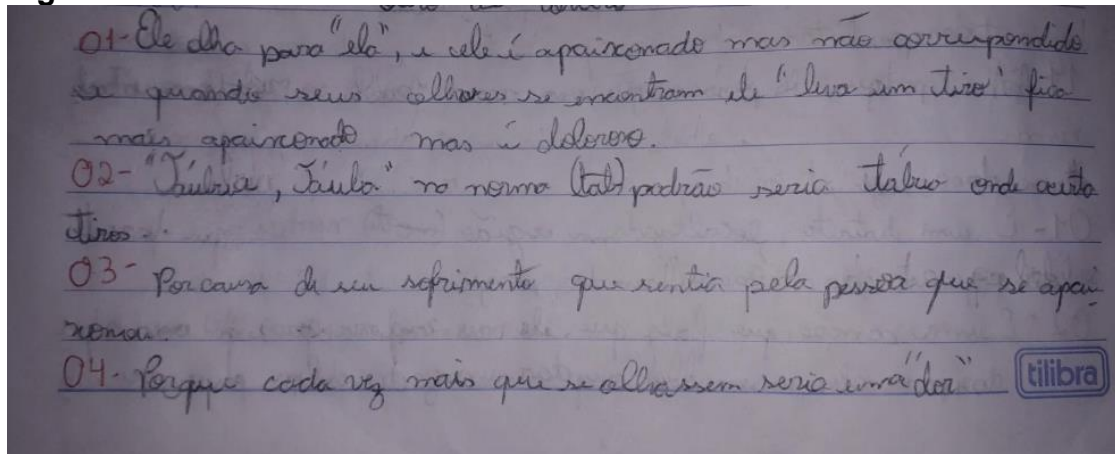 01- Ele olha para "ela", e ele é apaixonado mas não correspondido
quando seus olhares se encontram ele "leva um tiro" fica
mais apaixonado mas é doloroso.
02- "Táubua, Táuba" no norma (tal) padrão seria tábua onde acerta
tiros.
03- Por causa de seu sofrimento que sentia pela pessoa que se apai-
xonou.
04- Porque cada vez mais que se olhassem seria uma "dor"
tilibra